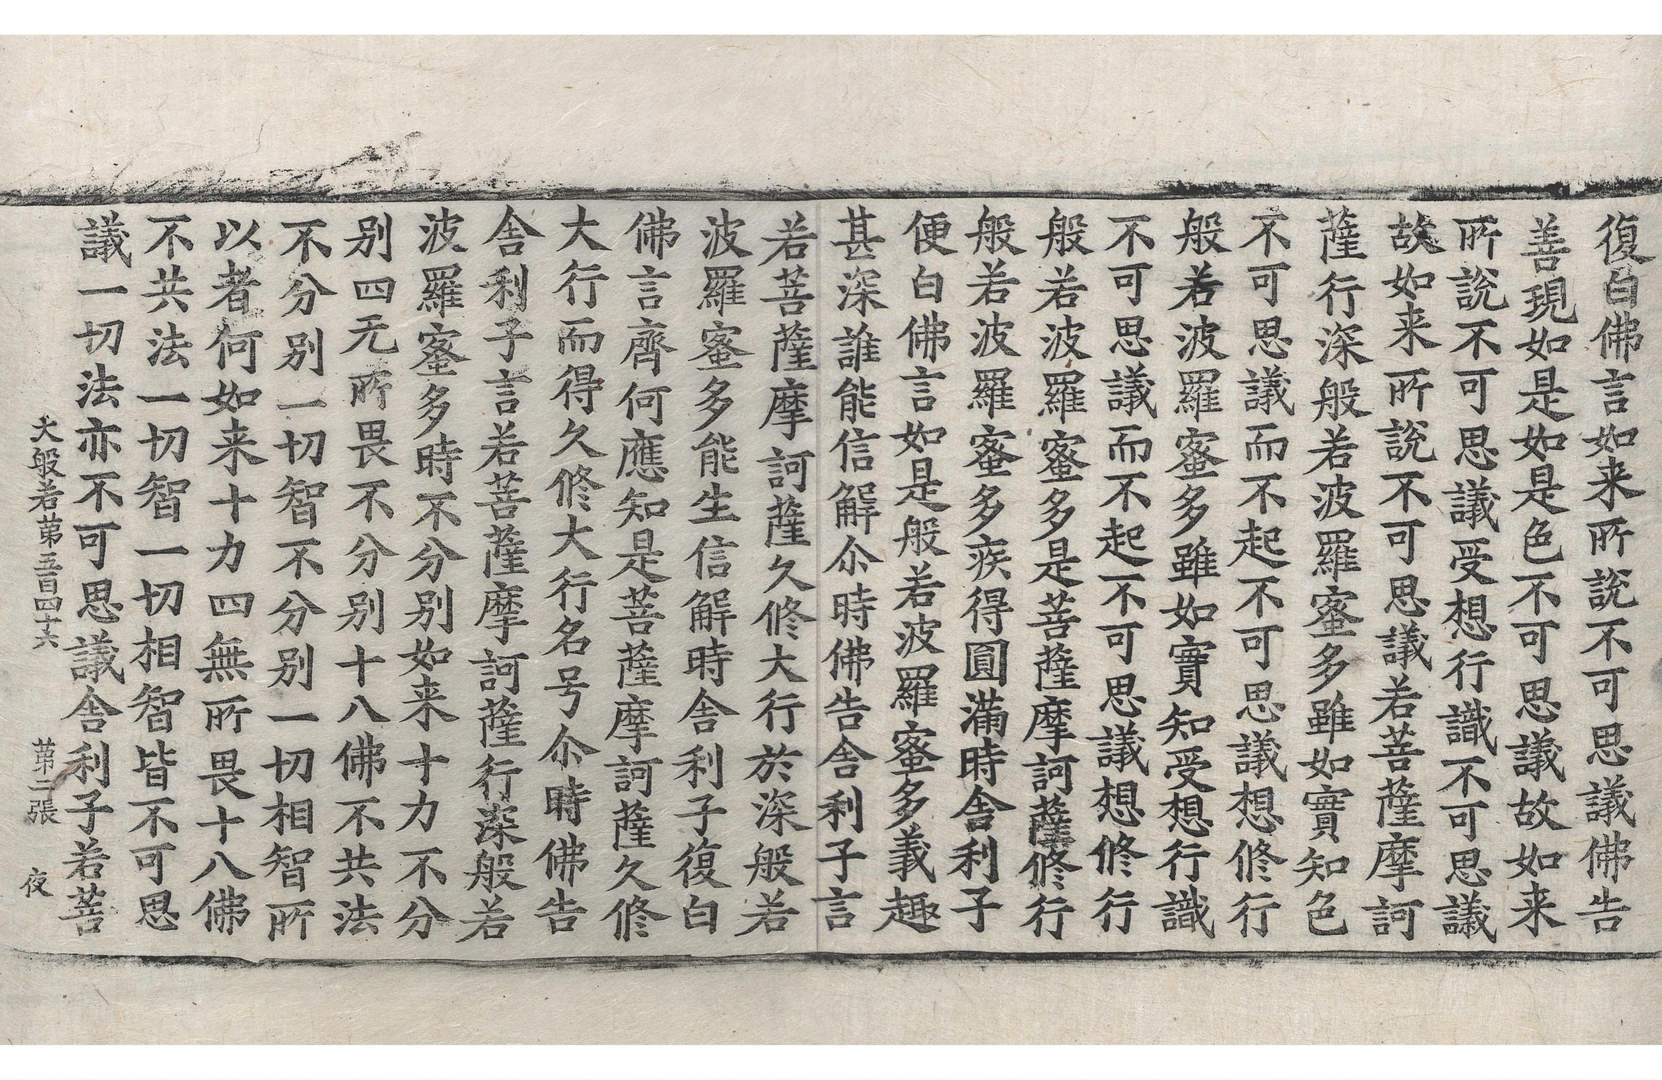 復白佛言如来所說不可思議佛告
善現如是如是色不可思議故如来
所說不可思議受想行識不可思議
故如来所說不可思議若菩薩摩訶
薩行深般若波羅蜜多雖如實知色
不可思議而不起不可思議想修行
般若波羅蜜多雖如實知受想行識
不可思議而不起不可思議想修行
般若波羅蜜多是菩薩摩訶薩修行
般若波羅蜜多疾得圓滿時舎利子
便白佛言如是般若波羅蜜多義趣
甚深誰能信解尒時佛告舎利子言
若菩薩摩訶薩久修大行於深般若
波羅蜜多能生信解時舎利子復白
佛言齊何應知是菩薩摩訶薩久修
大行而得久修大行名号尒時佛告
舎利子言若菩薩摩訶薩行深般若
波羅蜜多時不分別如来十力不分
別四无所畏不分別十八佛不共法
不分別一切智不分別一切相智所
以者何如来十力四無所畏十八佛
不共法一切智一切相智皆不可思
議一切法亦不可思議舎利子若菩
大般若第五百四十六 第二張 夜